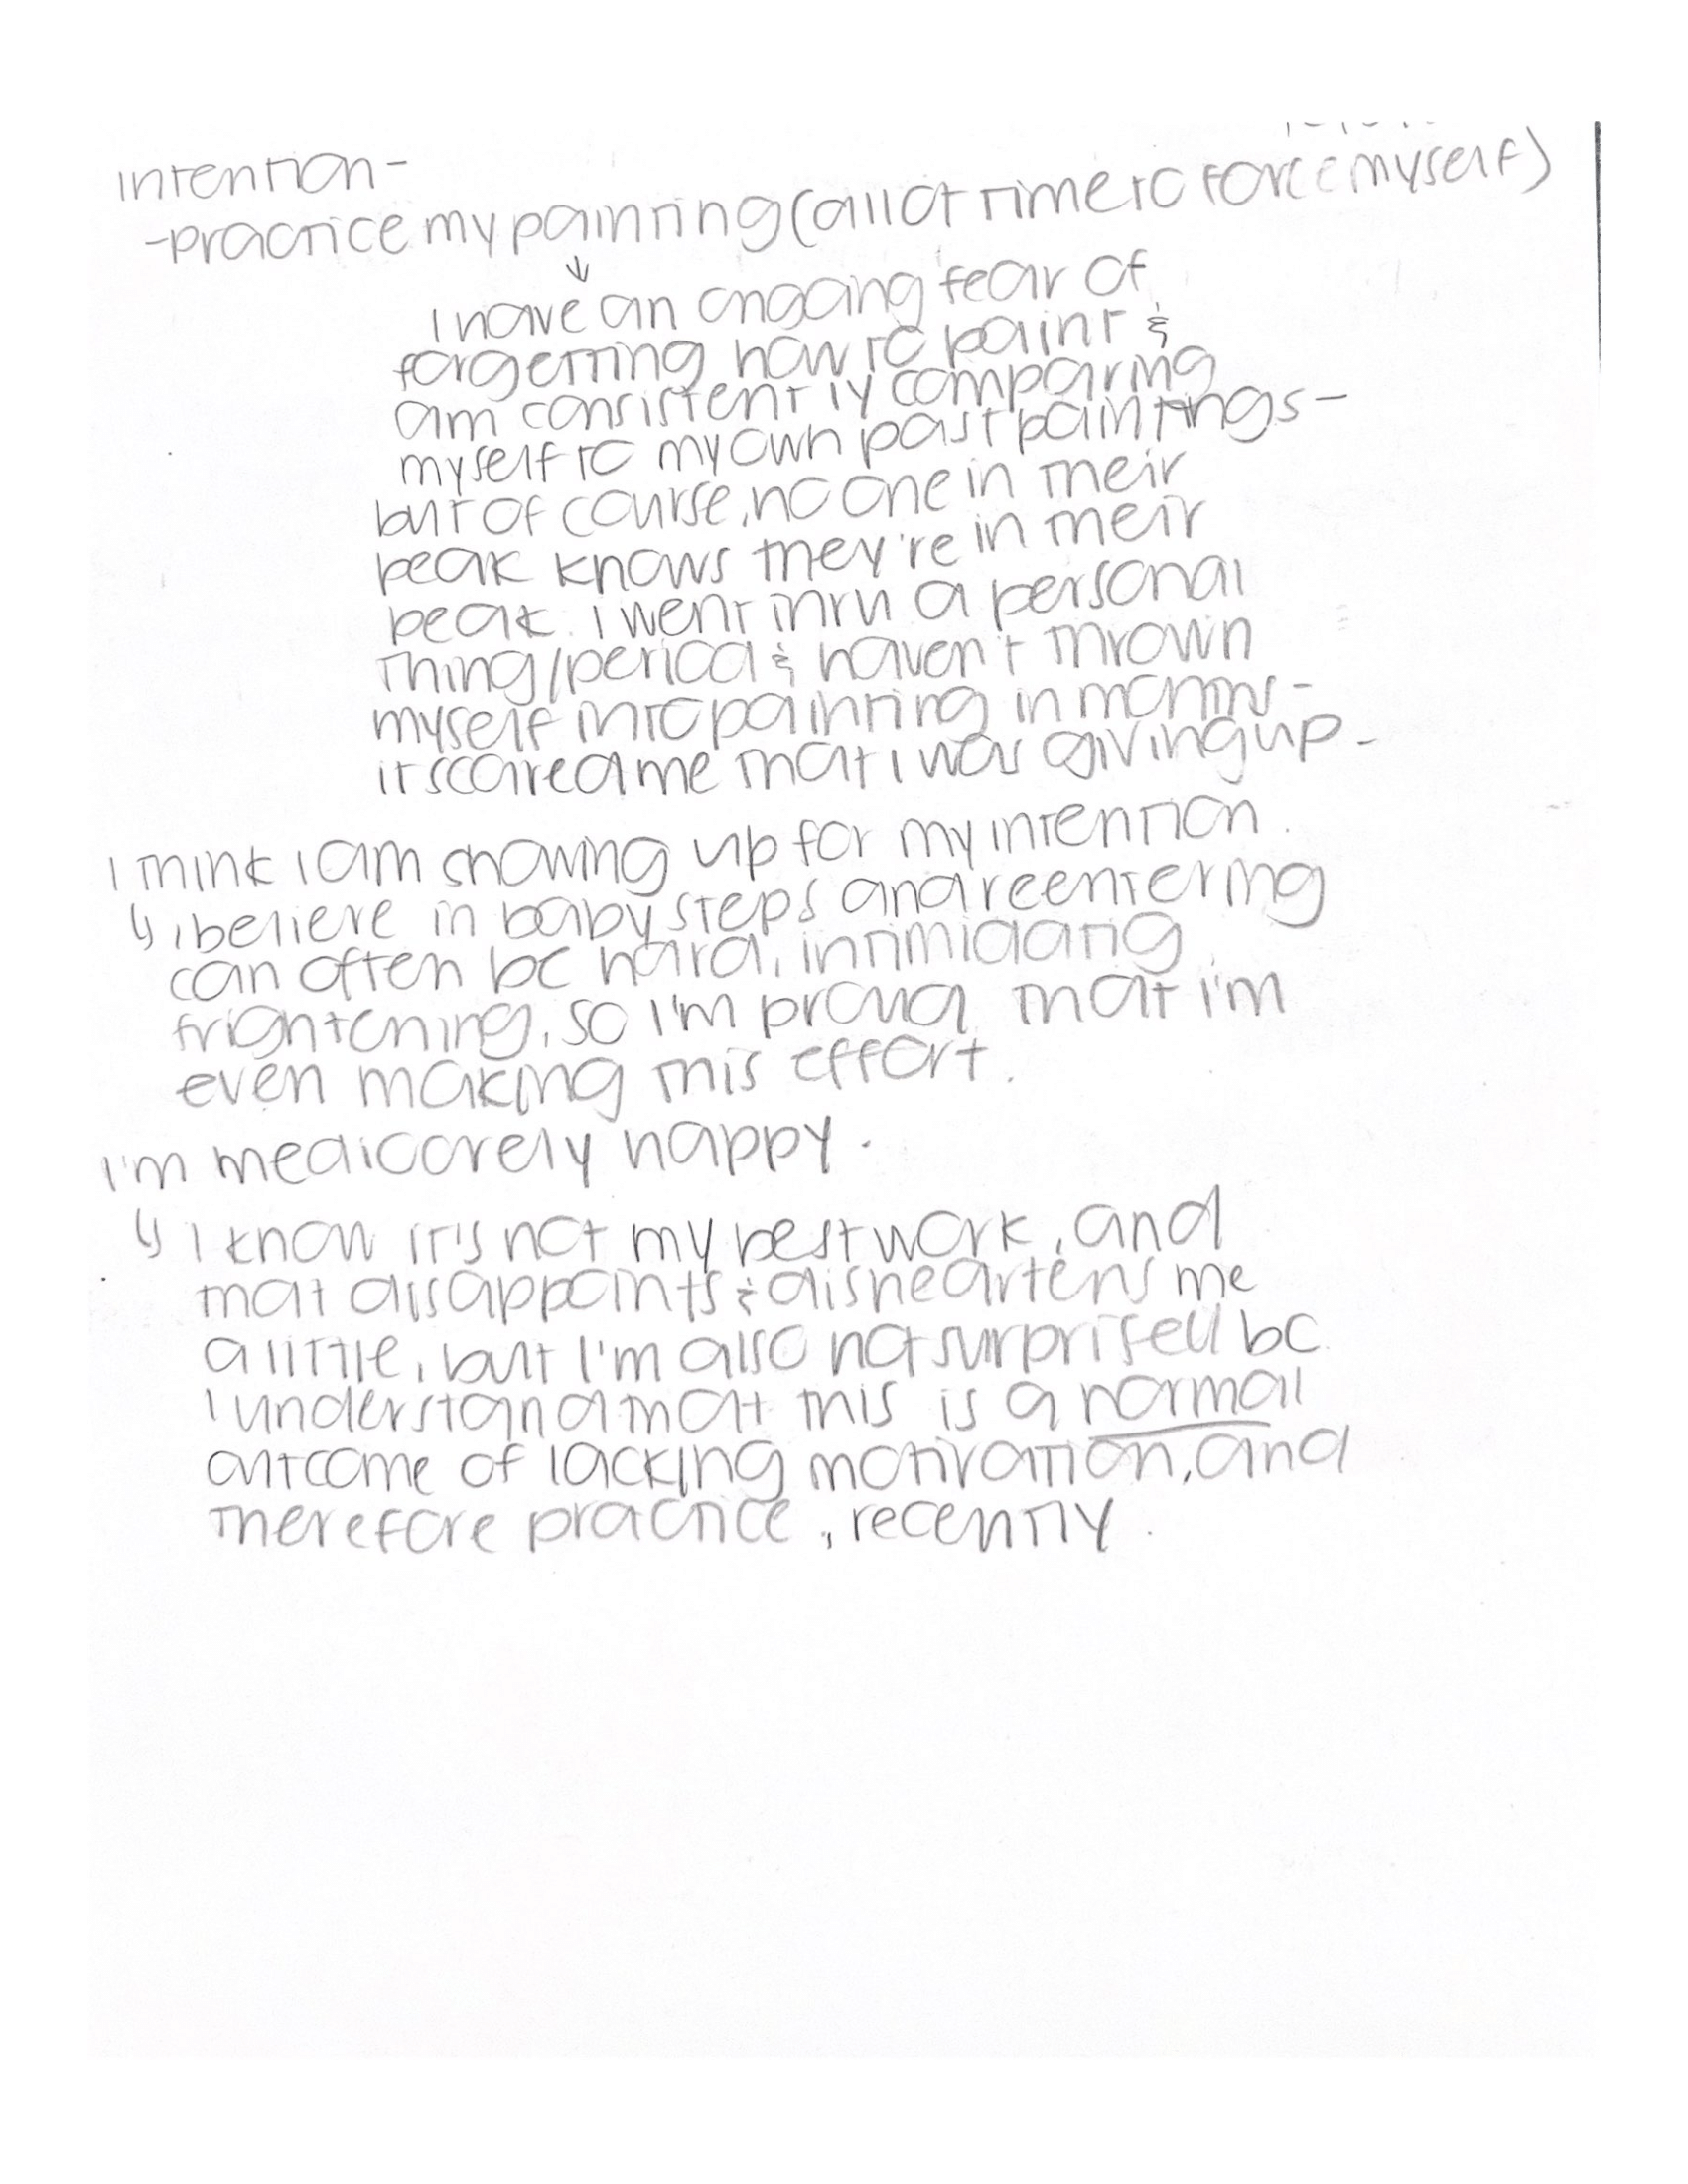 intention-
-practice my painting (allot time to force myself)
↓
I have an ongoing fear of
forgetting how to paint &
am consistently comparing
myself to my own past paintings-
but of course, no one in their
peak knows they're in their
peak. I went thru a personal
thing/period & haven't thrown
myself into painting in months-
it scared me that I was giving up-
I think I am showing up for my intention.
↳ I believe in baby steps and reentering
can often be hard, intimidatig
frightening, so I'm proud that I'm
even making this effort.
I'm mediocorely happy.
↳ I know it's not my best work, and
that dissappoints & disheartens me
a little, but I'm also not surprised bc
I understand that this is a normal
outcome of lacking motivation, and
therefore practice, recently.